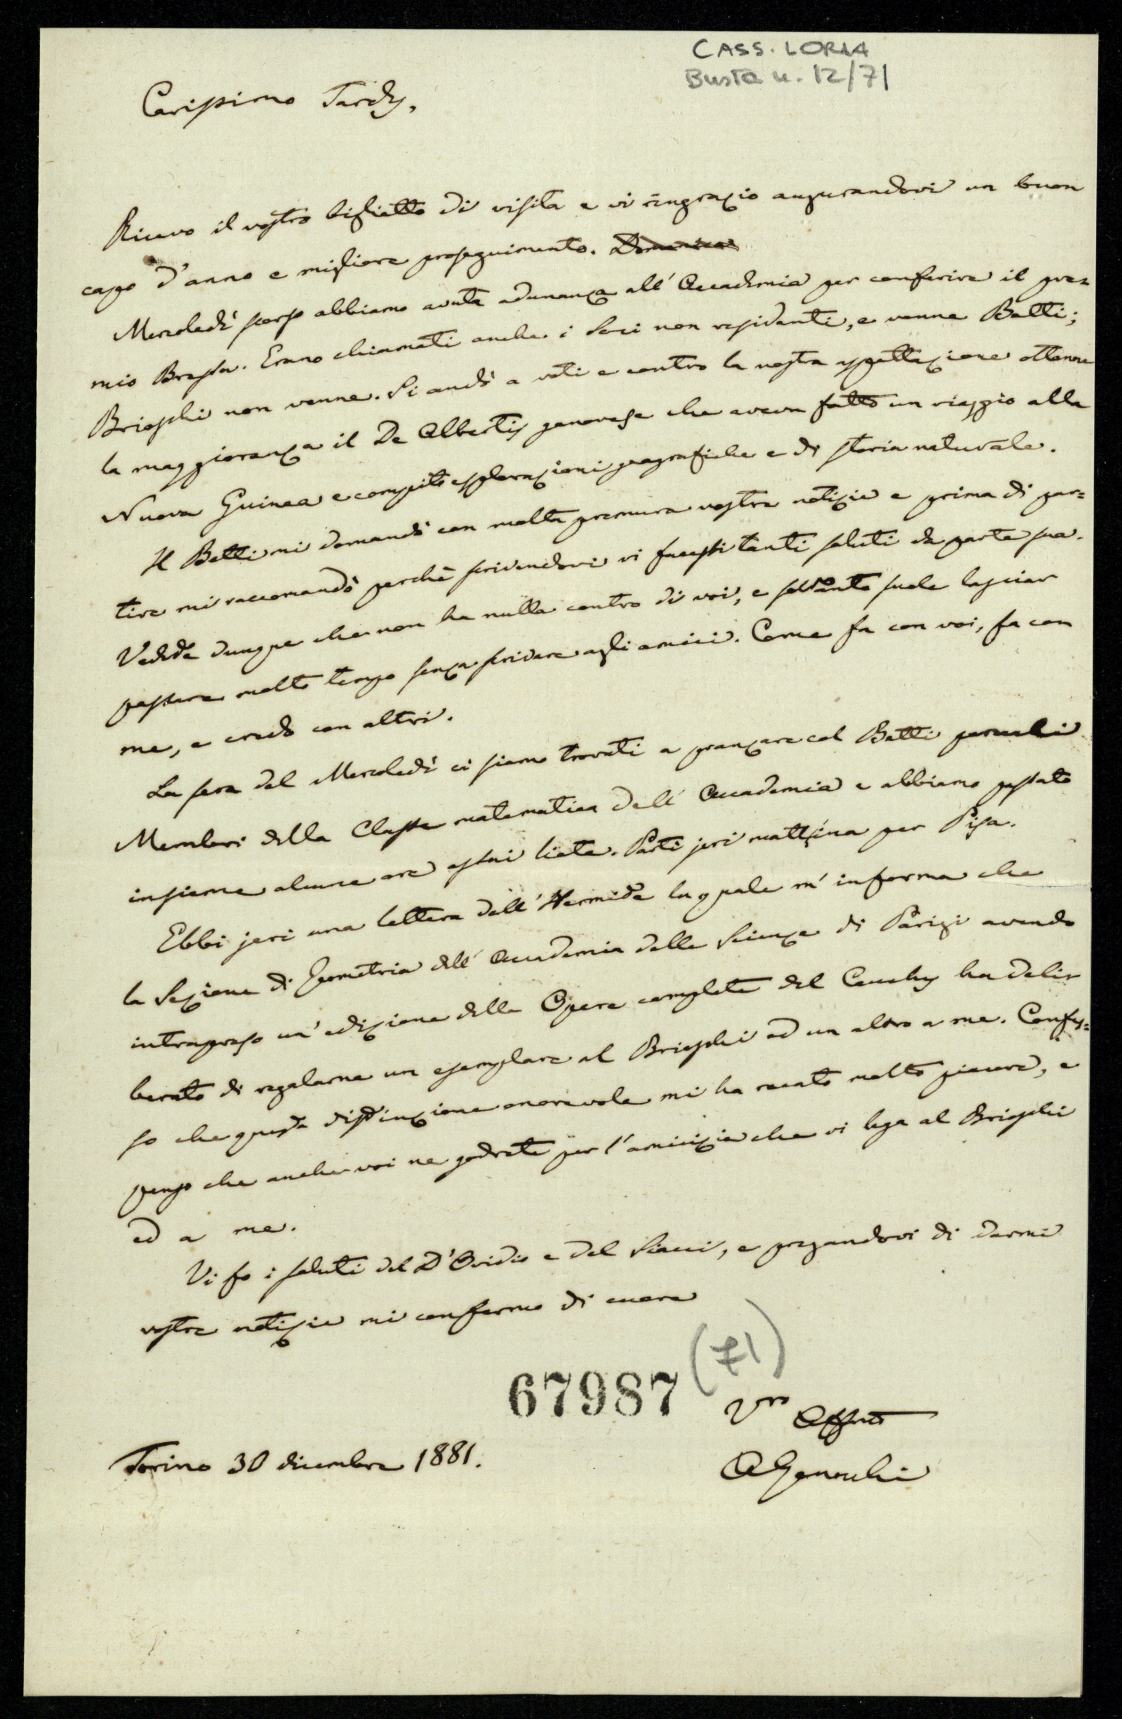 CASS. LORIA
Busta n. 12/71
Carissimo Tardy,
Ricevo il vostro biglietto di visita e vi ringrazio augurandovi un buon
capo d'anno e migliore proseguimento. Domenica
Mercoledì scorso abbiamo avuta adunanza all'Accademia per conferire il pre=
mio Bressa. Erano chiamati anche i Soci non residenti, e venne Betti;
Brioschi non venne. Si andò a voti e contro la nostra aspettazione ottenne
la maggioranza il De Albertis genovese che aveva fatto un viaggio alla
Nuova Guinea e compiuto esplorazioni geografiche e di storia naturale.
Il Betti mi domandò con molta premura vostre notizie e prima di par=
tire mi raccomandò perchè scrivendovi vi facessi tanti saluti da parte sua.
Vedete dunque che non ha nulla contro di voi, e soltanto suole lasciar
passare molto tempo senza scrivere agli amici. Come fa con voi, fa con
me, e credo con altri.
La sera del Mercoledì ci siamo trovati a pranzare col Betti parecchi
Membri della Classe matematica dell'Accademia e abbiamo passato
insieme alcune ore assai liete. Partì jeri mattina per Pisa.
Ebbi jeri una lettera dell'Hermite la quale m'informa che
la Sezione di Geometria dell'Accademia delle Scienze di Parigi avendo
intrapreso un'edizione delle Opere complete del Cauchy ha deli=
berato di regalarne un esemplare al Brioschi ed un altro a me. Confes=
so che questa distinzione onorevole mi ha recato molto piacere, e
penso che anche voi ne godrete per l'amicizia che vi lega al Brioschi
ed a me.
Vi fo i saluti del D'Ovidio e del Siacci, e pregandovi di darmi
vostre notizie mi confermo di cuore
(71)
67987
Vro Affmo
AGenocchi
Torino 30 dicembre 1881.